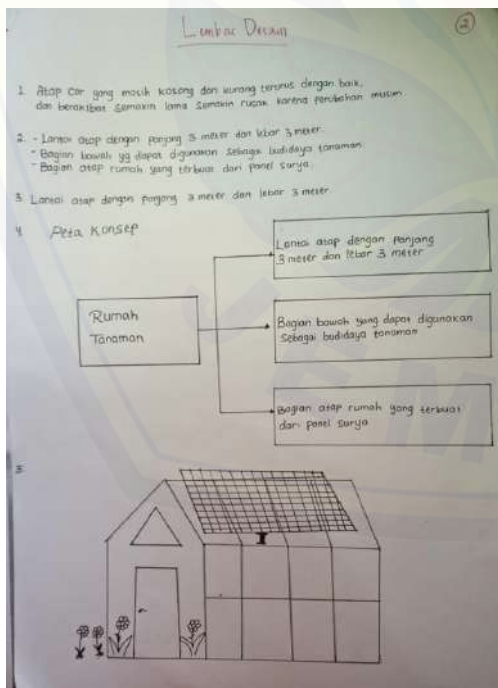 Lembar Desain
2
1. Atap cor yang masih kosong dan kurang terurus dengan baik,
dan berakibat semakin lama semakin rusak karena perubahan musim.
2. - Lantai atap dengan panjang 3 meter dan lebar 3 meter.
- Bagian bawah yg dapat digunakan sebagai budidaya tanaman.
- Bagian atap rumah yang terbuat dari panel surya.
3. Lantai atap dengan panjang 3 meter dan lebar 3 meter
4 Peta Konsep
Lantai atap dengan panjang
3 meter dan lebar 3 meter
Rumah
Tanaman
Bagian bawah yang dapat digunakan
sebagai budidaya tanaman
Bagian atap rumah yang terbuat
dari panel surya
5.